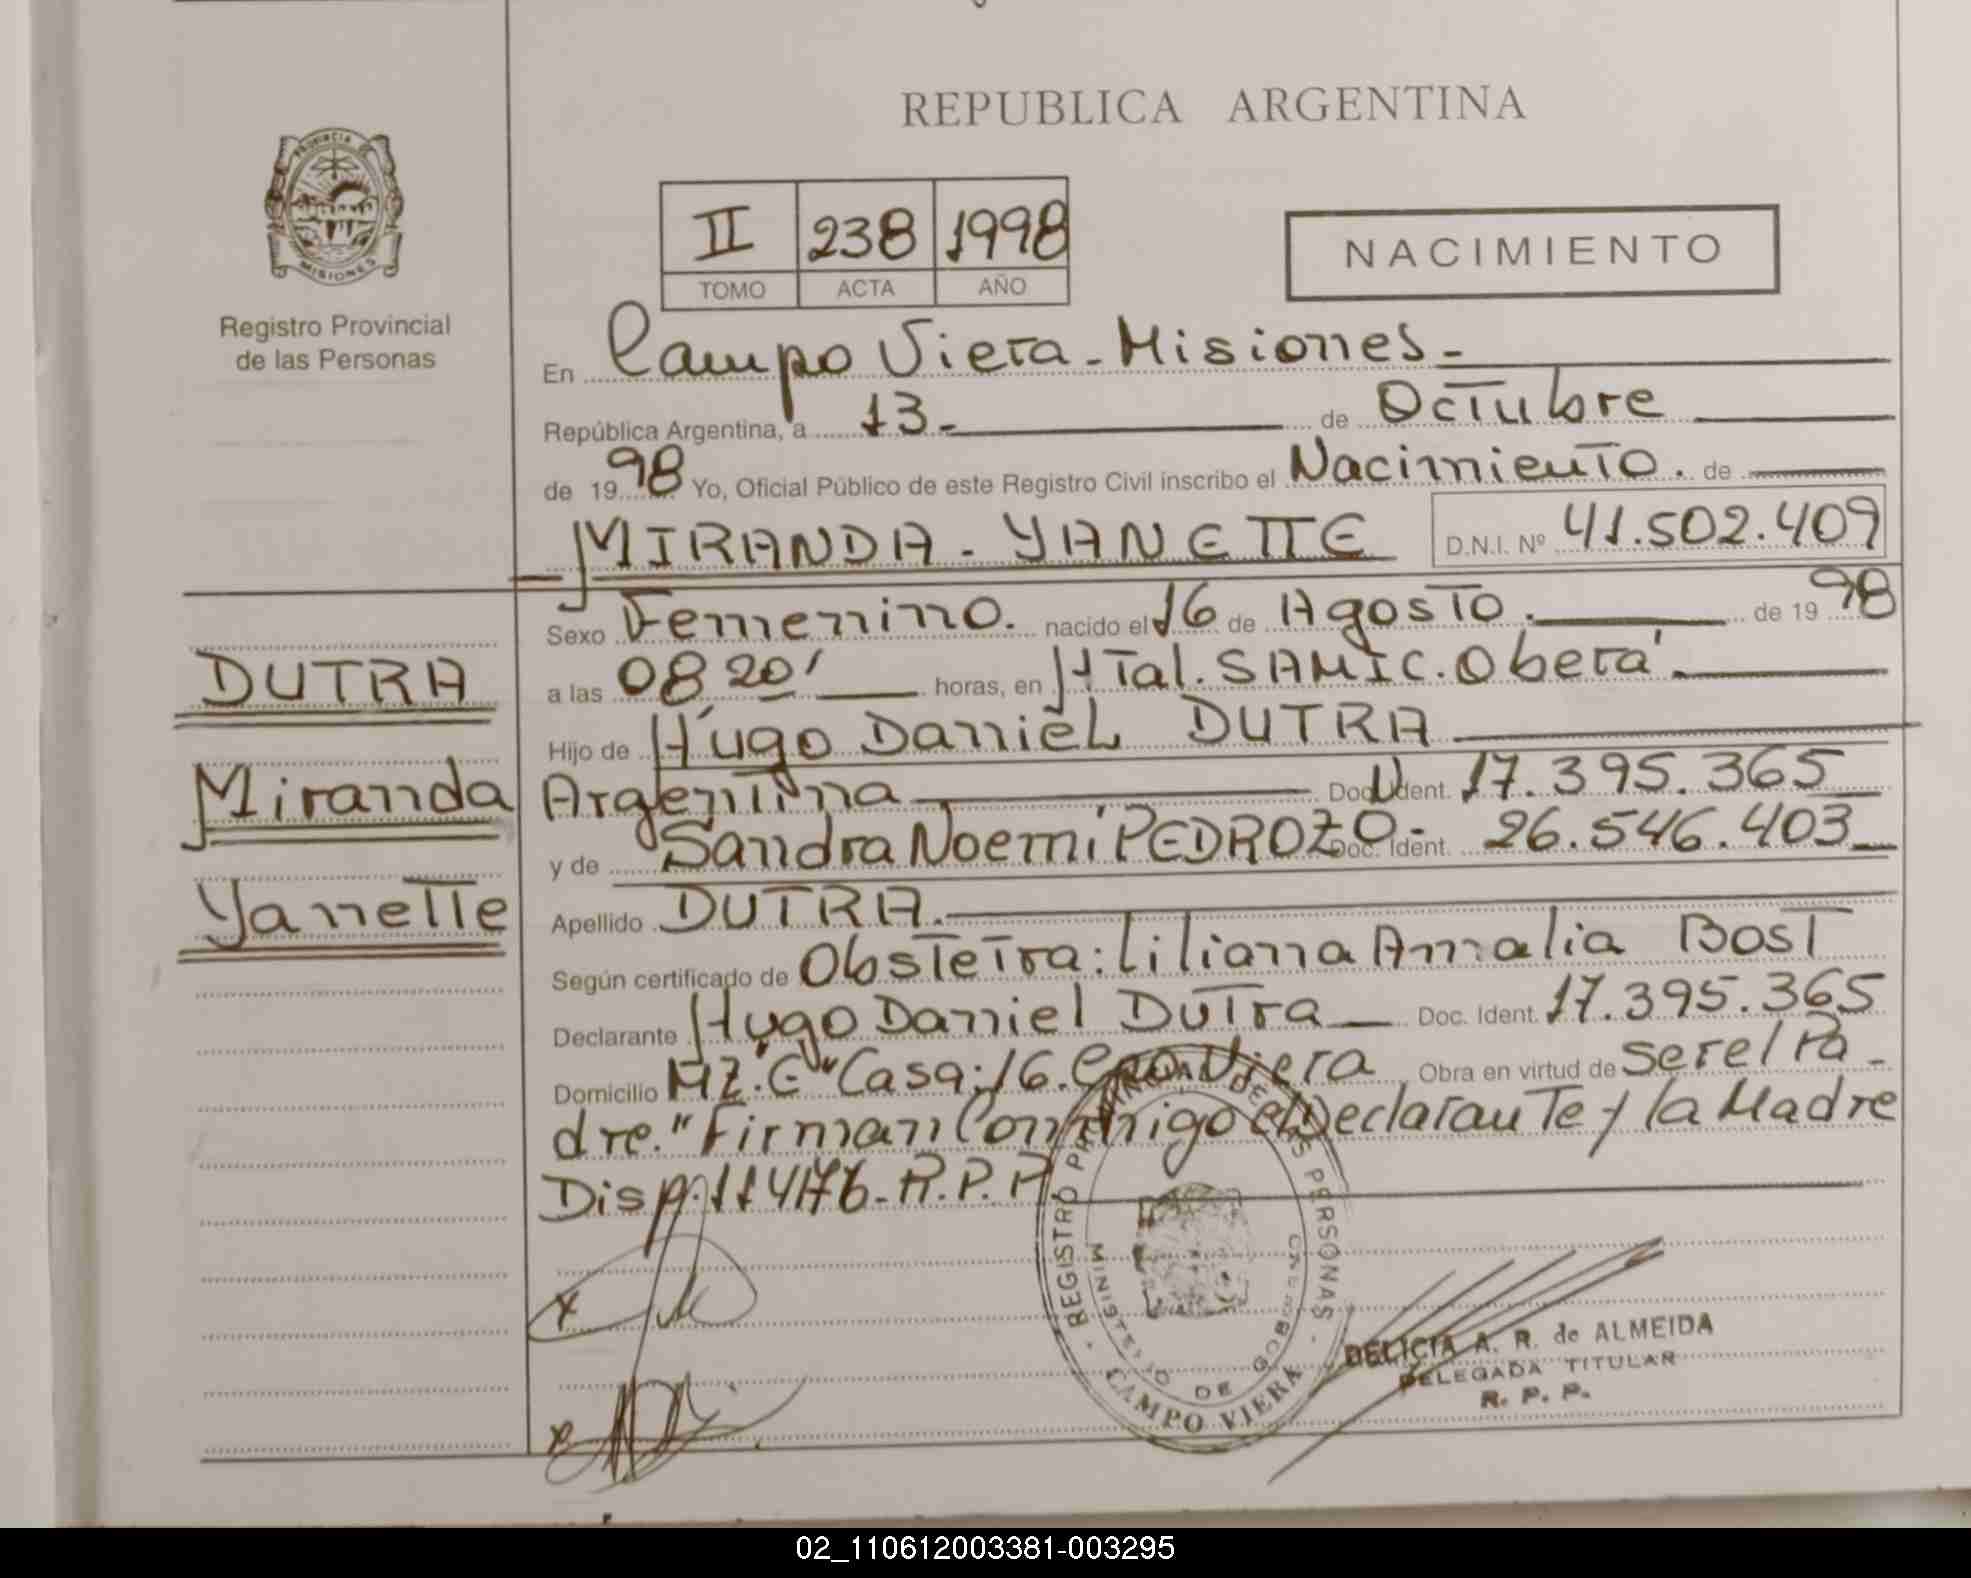 REPUBLICA ARGENTINA
PROVINCIA DE
MISIONES
Registro Provincial
de las Personas
II 238 1998
TOMO ACTA AÑO
NACIMIENTO
En Campo Viera - Misiones -
República Argentina, a 13 - de Octubre
de 1998 Yo, Oficial Público de este Registro Civil inscribo el Nacimiento. de
MIRANDA - YANETTE D.N.I. Nº 41.502.409
Sexo Femenino. nacido el 16 de Agosto. de 1998
a las 08 20' horas, en H Tal. SAMIC. Oberá
Hijo de Hugo Daniel DUTRA
Argentina Doc. Ident. 17.395.365
y de Sandra Noemí PEDROZO - Doc. Ident. 26.546.403
Apellido DUTRA.
Según certificado de Obstetra: Liliana Amalia BOST
Declarante Hugo Daniel Dutra Doc. Ident. 17.395.365
Domicilio MZ. "E" Casa: 16. Cpo Viera Obra en virtud de ser el Pa-
dre." Firman Conmigo el Declarante y la Madre
Disp. R.P.P
DUTRA
Miranda
Yanette
REGISTRO PROVINCIAL DE LAS PERSONAS
MINISTERIO DE GOBIERNO
CAMPO VIERA
DELICIA A. R. de ALMEIDA
DELEGADA TITULAR
R. P. P.
02_110612003381-003295